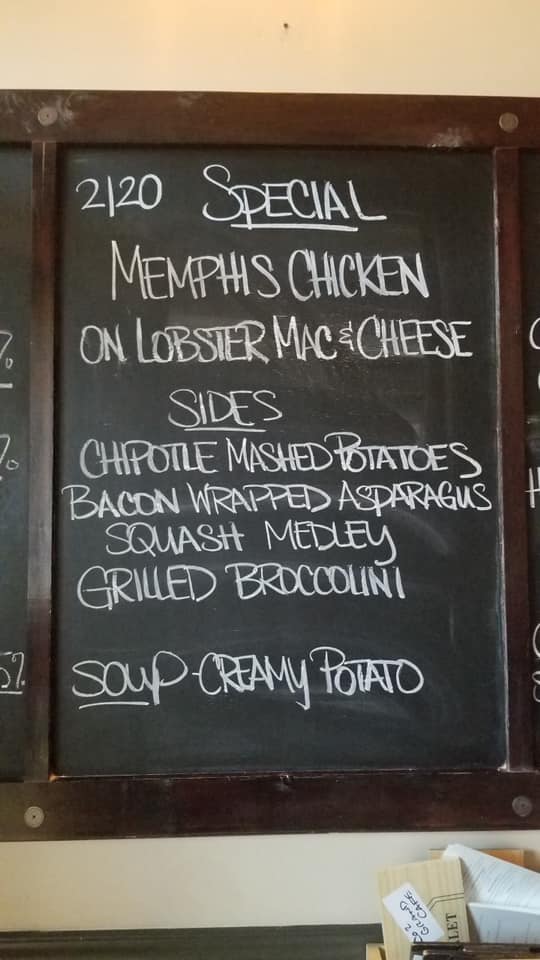 2/20 SPECIAL
MEMPHIS CHICKEN
ON LOBSTER MAC & CHEESE
SIDES
CHIPOTLE MASHED POTATOES
BACON WRAPPED ASPARAGUS
SQUASH MEDLEY
GRILLED BROCCOLINI
SOUP-CREAMY POTATO
%
%
5%
GRAND
CAFE
LET